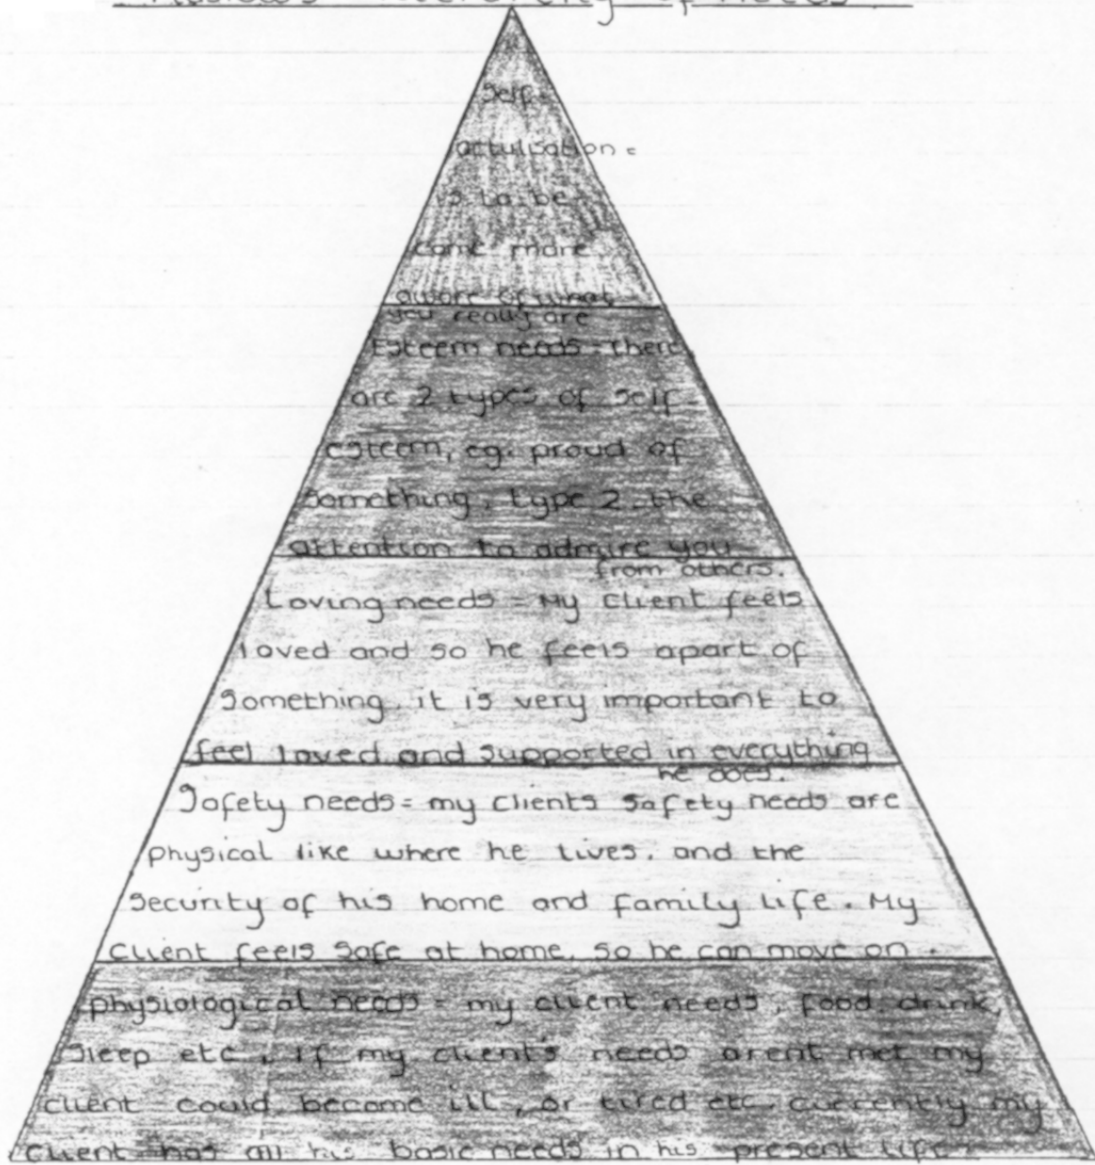 Maslows Hierarchy of Needs.
Self-
actulisation =
is to be-
come more
aware of what
you really are
Esteem needs = there
are 2 types of self
esteem, eg. proud of
something, type 2 - the
attention to admire you
from others.
Loving needs = My client feels
loved and so he feels apart of
something, it is very important to
feel loved and supported in everything
he does.
Safety needs = my clients safety needs are
physical like where he lives, and the
security of his home and family life. My
client feels safe at home, so he can move on.
physiological needs = my client needs, food drink,
sleep etc, if my client's needs arent met my
client could become ill, or tired etc currently my
client has all his basic needs in his present life